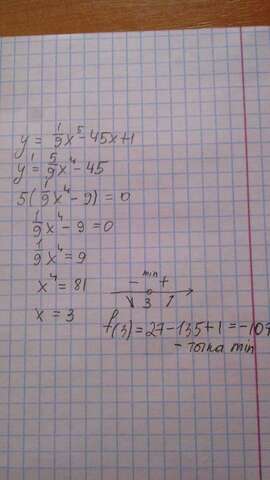 y = 1/9 x⁵ - 45x + 1
y' = 5/9 x⁴ - 45
5(1/9 x⁴ - 9) = 0
1/9 x⁴ - 9 = 0
1/9 x⁴ = 9
x⁴ = 81
x = 3
- min +
3
f(3) = 27 - 135 + 1 = -107
- точка min